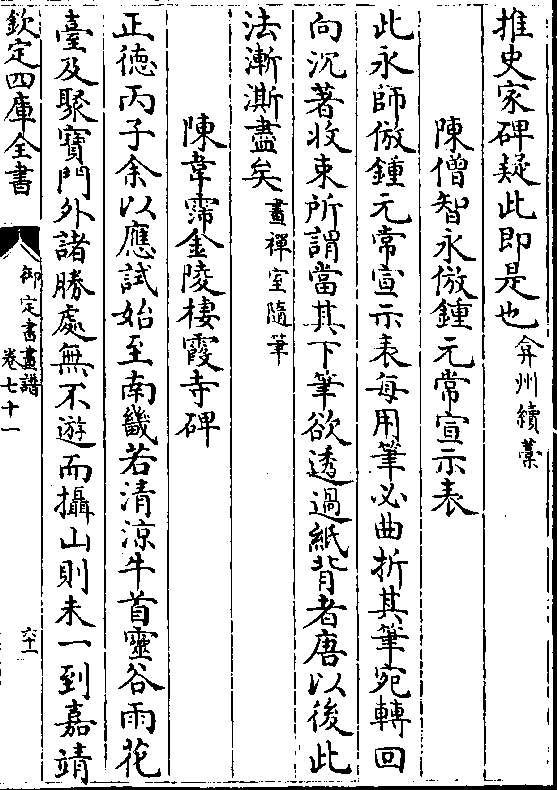 推史家碑疑此即是也弇州續藁
陳僧智永倣鍾元常宣示表
此永師倣鍾元常宣示表每用筆必曲折其筆宛轉回
向沉著收束所謂當其下筆欲透過紙背者唐以後此
法漸澌盡矣畫禪室隨筆
陳韋霈金陵棲霞寺碑
正徳丙子余以應試始至南畿若清涼牛首靈谷雨花
臺及聚寶門外諸勝處無不遊而攝山則未一到嘉靖
欽定四庫全書
御定書畫譜
卷七十一
六十一